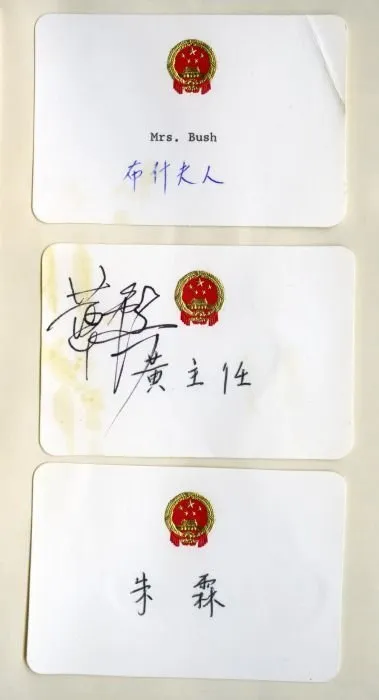 Mrs. Bush
布什夫人
黄主任
朱霖